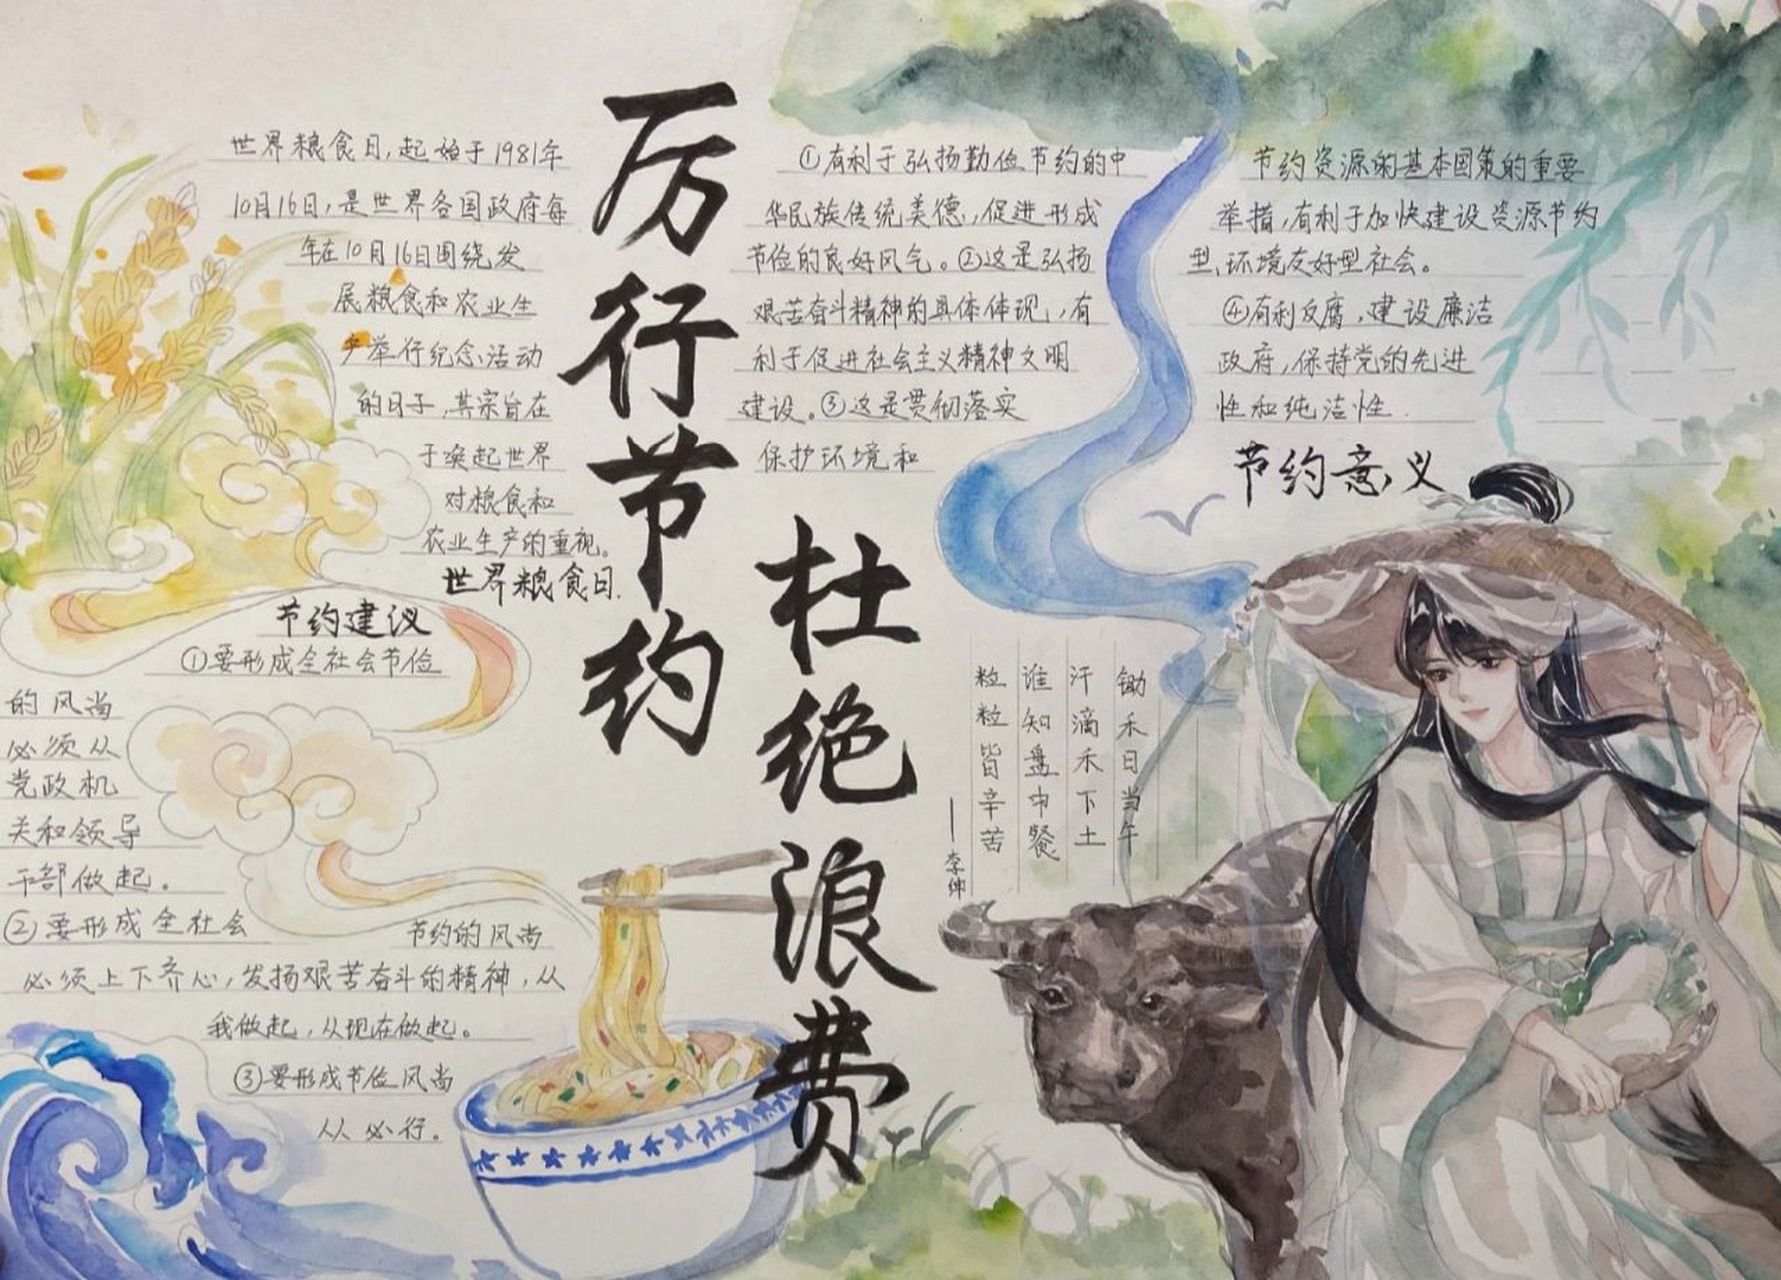 厉行节约
杜绝浪费
世界粮食日,起始于1981年
10月16日,是世界各国政府每
年在10月16日围绕发
展粮食和农业生
产举行纪念活动
的日子,其宗旨在
于唤起世界
对粮食和
农业生产的重视。
世界粮食日.
节约建议
①要形成全社会节俭
的风尚
必须从
党政机
关和领导
干部做起。
②要形成全社会
节约的风尚
必须上下齐心,发扬艰苦奋斗的精神,从
我做起,从现在做起。
③要形成节俭风尚
从必行。
①有利于弘扬勤俭节约的中
华民族传统美德,促进形成
节俭的良好风气。②这是弘扬
艰苦奋斗精神的具体体现,有
利于促进社会主义精神文明
建设。③这是贯彻落实
保护环境和
节约资源的基本国策的重要
举措,有利于加快建设资源节约
型、环境友好型社会。
④有利反腐,建设廉洁
政府,保持党的先进
性和纯洁性.
节约意义
锄禾日当午
汗滴禾下土
谁知盘中餐
粒粒皆辛苦
——李绅